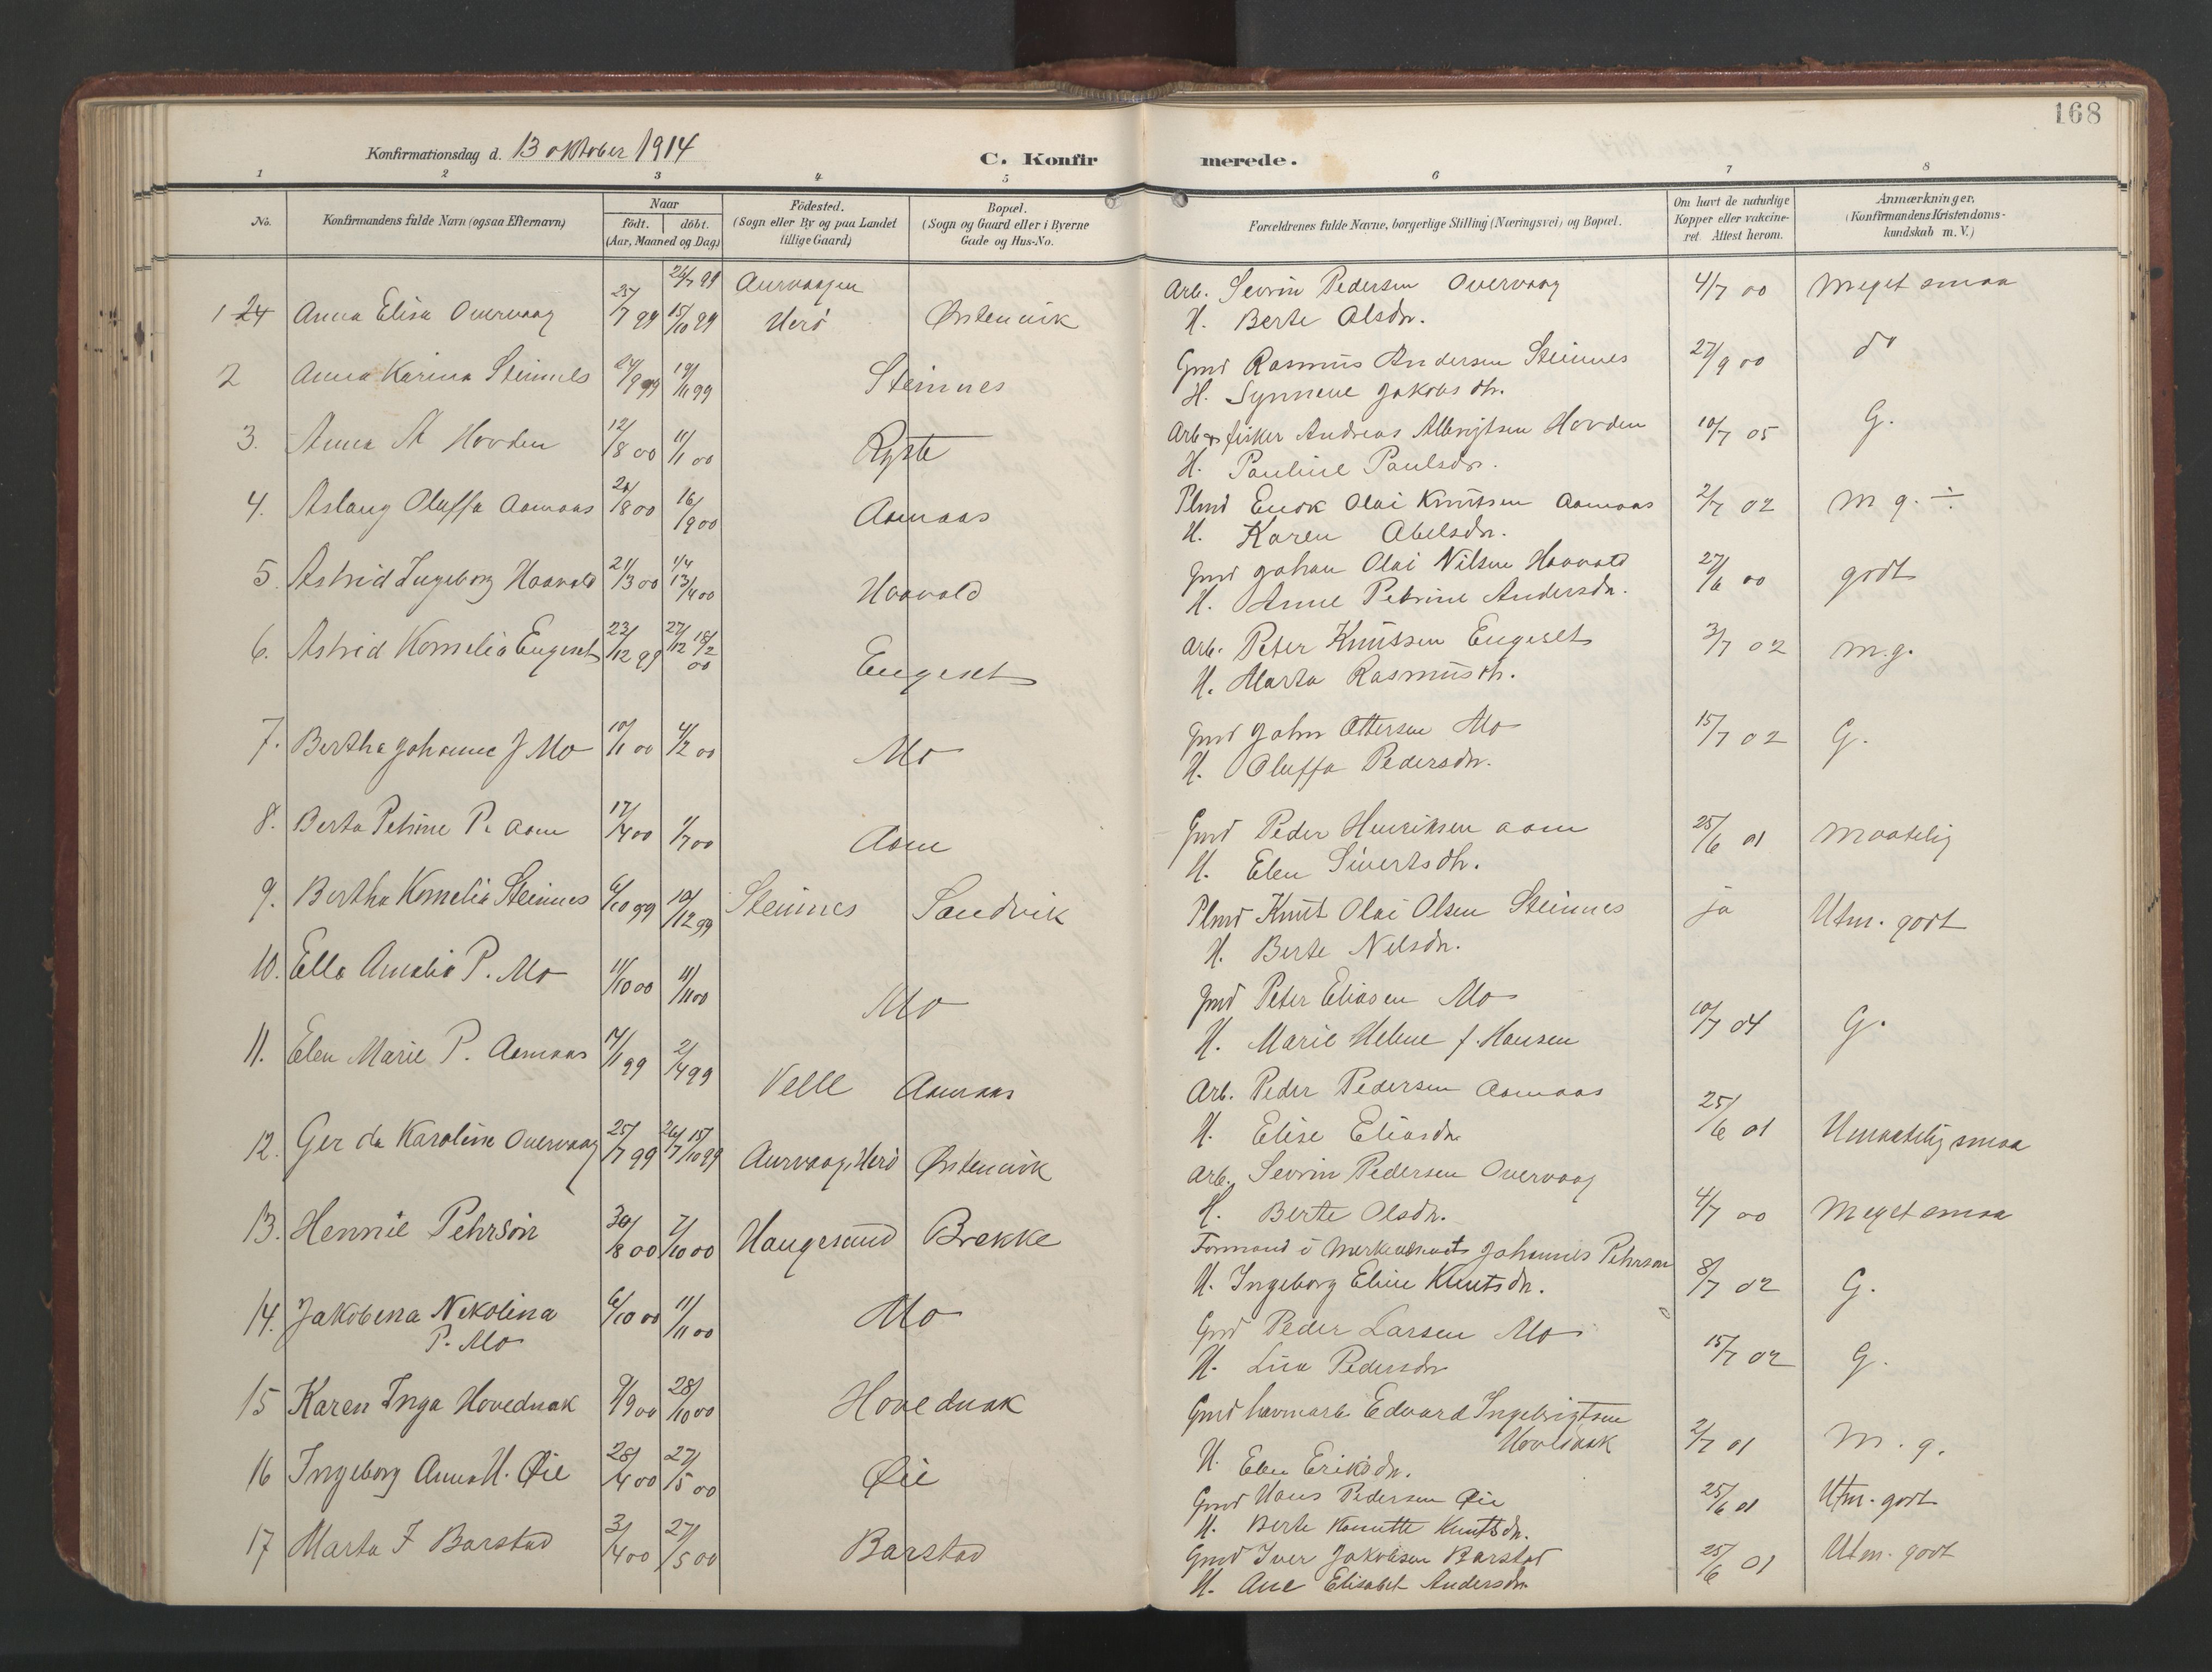 168
Konfirmationsdag d. 13 oktober 1914
C. Konfirmerede.
1 2 3 4 5 6 7 8
No. Konfirmandens fulde Navn (ogsaa Efternavn) Naar födt. döbt. (Aar, Maaned og Dag) Födested. (Sogn eller By og paa Landet tillige Gaard) Bopæl. (Sogn og Gaard eller i Byerne Gade og Hus-No. Forældrenes fulde Navne, borgerlige Stilling (Næringsvei) og Bopæl. Om havt de naturlige Kopper eller vakcineret. Attest herom. Anmærkninger. (Konfirmandens Kristendomskundskab m.V.)
1 24 Anna Elisa Overvaag 25/7 99 26/7 99 15/10 99 Aurvaagen Herö Østenvik Arb. Sevrin Pedersen Overvaag 4/7 00 Meget smaa
H. Berte Olsdr.
2 Anna Karina Steinnes 24/9 99 19/11 99 Steinnes Gmd Rasmus Andersen Steinnes 27/9 00 do
H. Synneve Jakobsdtr.
3. Anna A Hovden 12/8 00 11/11 00 Ryste Arb & fisker Andreas Albrigtsen Hovden 10/7 05 G.
H. Pauline Paulsdr.
4. Aslaug Oluffa Aamaas 21/8 00 16/9 00 Aamaas Plmd Enok Olai Knutsen Aamaas 2/7 02 m g. ÷
H. Karen Abelsdr.
5. Astrid Ingeborg Haavold 21/3 00 1/4 13/4 00 Haavold Gmd Johan Olai Nilsen Haavold 27/6 00 godt
H. Anne Petrine Andersdr.
6. Astrid Kornelia Engeset 23/12 99 27/12 18/2 00 Engeset Arb. Peter Knutsen Engeset 3/7 02 m.g.
H. Marta Rasmusdtr.
7. Bertha Johanne J Mo 10/1 00 4/2 00 Mo Gmd John Ottersen Mo 15/7 02 G.
H. Oluffa Pedersdr.
8. Berta Petrine P. Aam 17/4 00 1/7 00 Aam Gmd Peder Henriksen Aam 25/6 01 Maatelig
H. Elen Sivertsdtr.
9. Bertha Kornelia Steinnes 6/10 99 10/12 99 Steinnes Sandvik Plmd Knut Olai Olsen Steinnes ja Utm. godt
H. Berte Nelsdr.
10. Ella Amalia P. Mo 11/10 00 11/11 00 Mo Gmd Peter Eliasen Mo 10/7 04 G.
H. Marie Helene f. Hansen
11. Elen Marie P. Aamaas 14/1 99 2/4 99 Velle Aamaas Arb. Peder Pedersen Aamaas 25/6 01 Umaatelig smaa
H. Elise Eliasdr
12. Gerda Karoline Overvaag 25/7 99 26/7 15/10 99 Aurvaag, Herö Østenvik Arb. Sevrin Pedersen Overvaag 4/7 00 Meget smaa
H. Berte Olsdr.
13. Hennie Pehrson 30/8 00 7/10 00 Haugesund Brekke Formand i Johannes Pehrson 8/7 02 G.
H. Ingeborg Eline Knutsdr.
14. Jakobina Nikolina P. Mo 6/10 00 11/11 00 Mo Gmd Peder Larsen Mo 15/7 02 G.
H. Lina Pedersdr
15 Karen Inga Hovednak 9/9 00 28/10 00 Hovednak Gmd havnearb Edvard Ingebrigtsen Hovednak 2/7 01 m. g.
H. Elen Eriksdr.
16 Ingeborg Anna H. Øie 28/4 00 27/5 00 Øie Gmd Hans Pedersen Øie 25/6 01 Utm. godt
H. Berte Knutsdr.
17 Marta I Barstad 3/4 00 27/5 00 Barstad Gmd Iver Jakobsen Barstad 25/6 01 Utm. godt
H. Ane Elisabet Andersdr